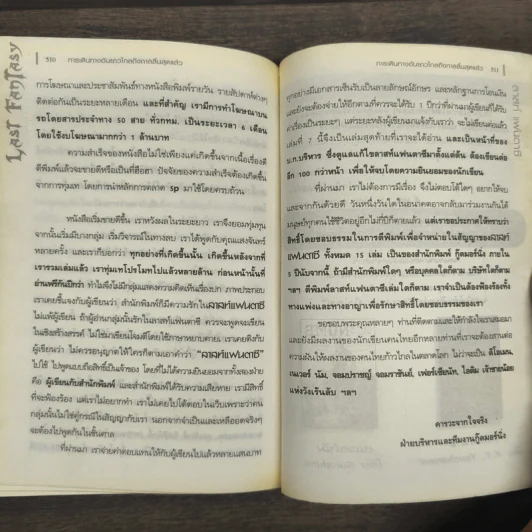 LAST FANTASY
310 การเดินทางอันยาวไกลถึงกาลสิ้นสุดแล้ว
การโฆษณาและประชาสัมพันธ์ทางหนังสือพิมพ์รายวัน รายสัปดาห์ต่างๆ
ติดต่อกันเป็นระยะหลายเดือน และที่สำคัญ เรามีการทำโฆษณาบน
รถโดยสารประจำทาง 50 สาย ทั่วกทม. เป็นระยะเวลา 6 เดือน
โดยใช้งบโฆษณามากกว่า 1 ล้านบาท
ความสำเร็จของหนังสือไม่ใช่เพียงแค่เกิดขึ้นจากเนื้อเรื่องดี
ตีพิมพ์แล้วจะขายดีหรือเป็นที่ฮือฮา ปัจจัยของความสำเร็จต้องเกิดขึ้น
จากการทุ่มเท โดยการนำหลักการตลาด sp มาใช้โดยครบถ้วน
หนังสือเริ่มขายดีขึ้น เราหวังผลในระยะยาว เราจึงยอมทุ่มทุน
จากนั้นเริ่มมีบางกลุ่ม เริ่มวิจารณ์ในทางลบ เราได้พูดกับคุณแสงจันทร์
หลายครั้ง และเราก็บอกว่า ทุกอย่างที่เกิดขึ้นนั้น เกิดขึ้นหลังจากที่
เรารวมเล่มแล้ว เราทุ่มเทโปรโมทไปแล้วหลายด้าน ก่อนหน้านั้นที่
อ่านฟรีกันปีกว่า ทำไมจึงไม่มีกลุ่มแสดงความคิดเห็นเรื่องปก ภาพประกอบ
เราเคยชี้แจงกับผู้เขียนว่า สำนักพิมพ์ก็มีความรักในลาสท์แฟนตาซี
ไม่แพ้ผู้เขียน ถ้าผู้อ่านกลุ่มนั้นรักในลาสท์แฟนตาซี ควรจะพูดจะเขียน
ในเชิงสร้างสรรค์ ไม่ใช่มาเขียนโจมตีโดยใช้ภาษาหยาบคาย เราเคยคิดถึง
ผู้เขียนว่า ไม่ควรอนุญาตให้ใครก็ตามเอาคำว่า “ลาสท์แฟนตาซี”
ไปใช้ ไปพูดแบบถือสิทธิ์เป็นเจ้าของ โดยที่ไม่ได้ความยินยอมจากทั้งสองฝ่าย
คือ ผู้เขียนกับสำนักพิมพ์ และสำนักพิมพ์ได้รับความเสียหาย เรามีสิทธิ์
ที่จะฟ้องร้อง แต่เราไม่อยากทำ เราไม่เคยไปโต้ตอบในเว็บเพราะว่าคน
กลุ่มนั้นไม่ใช่คู่กรณีในสัญญากับเรา นอกจากจำเป็นและเหลืออดจริงๆ
จะต้องไปพูดกันในชั้นศาล
ที่ผ่านมา เราจ่ายค่าตอบแทนให้กับผู้เขียนไปแล้วหลายแสนบาท
การเดินทางอันยาวไกลถึงกาลสิ้นสุดแล้ว 311
ทุกอย่างมีเอกสารเซ็นรับเป็นลายลักษณ์อักษร และหลักฐานการโอนเงิน
และยังจะต้องจ่ายให้อีกตามที่ควรจะได้รับ 1 ปีกว่าที่ผ่านมาผู้เขียนก็ได้รับ
ค่าเรื่องเป็นระยะๆ แต่ระยะหลังผู้เขียนมาแจ้งกับเราว่า จะไม่เขียนต่อแล้ว
เล่มที่ 7 นี้จึงเป็นเล่มสุดท้ายที่เราจะได้อ่าน และเป็นหน้าที่ของ
บ.ก.บริหาร ซึ่งดูแลแก้ไขลาสท์แฟนตาซีมาตั้งแต่ต้น ต้องเขียนต่อ
อีก 100 กว่าหน้า เพื่อให้จบโดยความยินยอมของนักเขียน
ที่ผ่านมา เราไม่ต้องการมีเรื่อง จึงไม่ตอบโต้ใดๆ อยากให้จบ
และจากกันด้วยดี วันหนึ่งวันใดในอนาคตอาจกลับมาร่วมงานกันได้
มนุษย์ทุกคนใช้ชีวิตอยู่อีกไม่กี่ปีก็ตายแล้ว แต่เราขอประกาศให้ทราบว่า
สิทธิ์โดยชอบธรรมในการตีพิมพ์เพื่อจำหน่ายในสัญญาของลาสท์
แฟนตาซี ทั้งหมด 15 เล่ม เป็นของสำนักพิมพ์ กู๊ดมอร์นิ่ง ภายใน
5 ปีนับจากนี้ ถ้ามีสำนักพิมพ์ใดๆ หรือบุคคลใดก็ตาม บริษัทใดก็ตาม
ฯลฯ ตีพิมพ์ลาสท์แฟนตาซีเล่มใดก็ตาม เราจำเป็นต้องฟ้องร้องทั้ง
ทางแพ่งและทางอาญาเพื่อรักษาสิทธิ์โดยชอบธรรมของเรา
ขอขอบพระคุณหลายๆ ท่านที่ติดตามและให้กำลังใจเราเสมอมา
และยังมีผลงานของนักเขียนคนไทยอีกหลายท่านที่เราจะต้องสานต่อ
ความฝันให้ผลงานของคนไทยก้าวไกลในตลาดโลก ไม่ว่าจะเป็น ดีโอเมน,
เนเวอร์ นัม, จอมปราชญ์ จอมราชันย์, เฟอร์เซียนัท, ไอติม เจ้าชายน้อย
แห่งวังเร้นลับ ฯลฯ
คารวะจากใจจริง
ฝ่ายบริหารและทีมงานกู๊ดมอร์นิ่ง